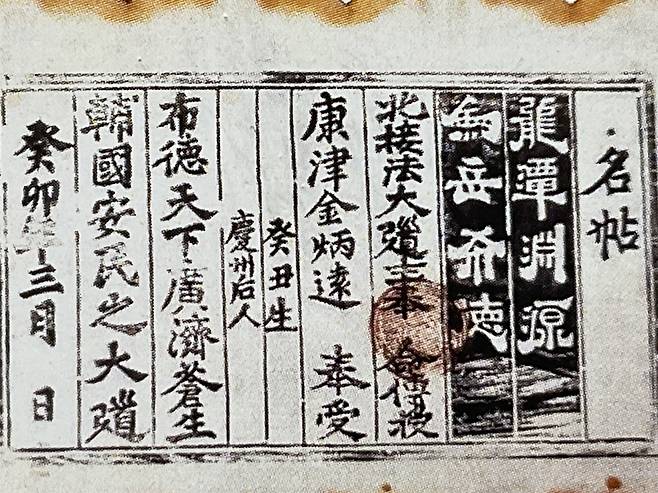 名帖
龍潭淵源
岳布德
北接法大道主奉 命傳授
康津金炳遠 奉受
癸丑生
慶州后人
布德天下廣濟蒼生
輔國安民之大道
癸卯年三月 日